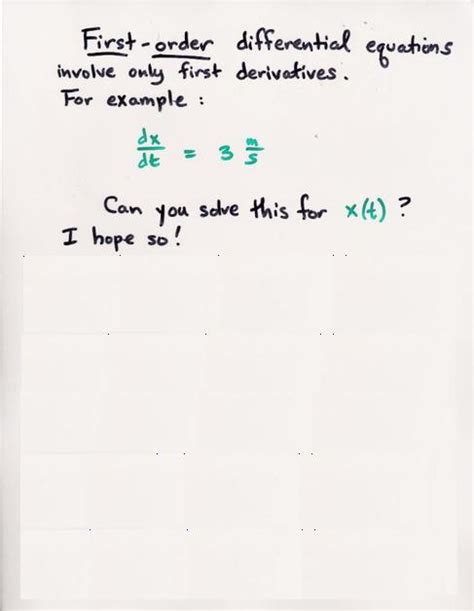 First-order differential equations
involve only first derivatives.
For example :
dx/dt = 3 m/s
Can you solve this for x(t) ?
I hope so!